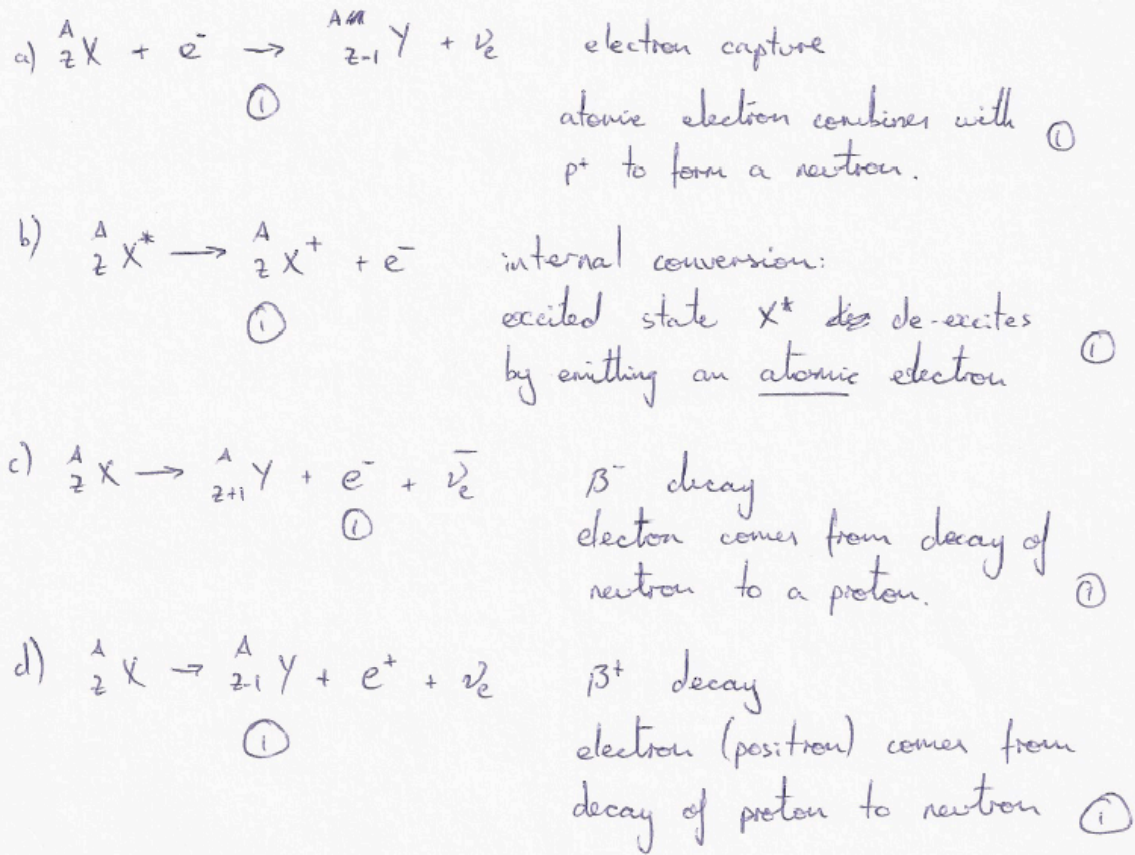 a) ᴬ_Z X + e⁻ → ᴬ_Z-1 Y + νₑ electron capture
①
atomic electron combines with ①
p⁺ to form a neutron.
b) ᴬ_Z X* → ᴬ_Z X⁺ + e⁻ internal conversion:
① excited state X* de-excites ①
by emitting an atomic electron
c) ᴬ_Z X → ᴬ_Z+1 Y + e⁻ + ν̄ₑ β⁻ decay
① electron comes from decay of
neutron to a proton. ①
d) ᴬ_Z X → ᴬ_Z-1 Y + e⁺ + νₑ β⁺ decay
① electron (positron) comes from
decay of proton to neutron ①